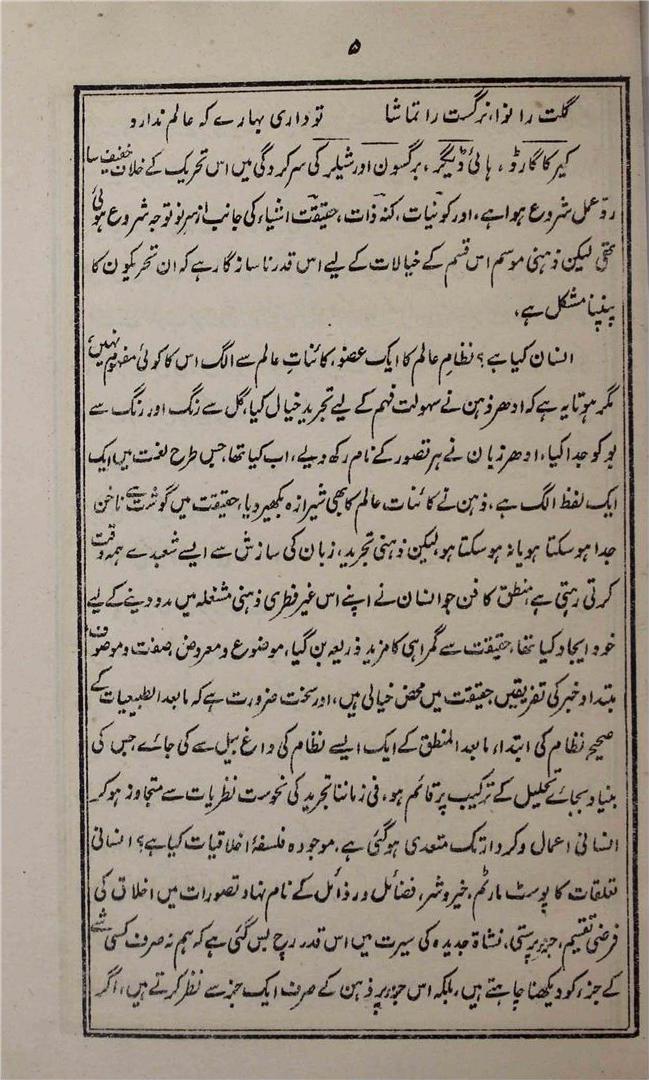 ۵
گلت را نوا، نرگست را تماشا تو داری بہارے کہ عالم ندارد
کیرکاگارڈ، ہائیڈیگر، برگسون اور شیلر کی سرکردگی میں اس تحریک کے خلاف خفیف سا
ردِّ عمل شروع ہوا ہے، اور کونیات، کنہ ذات، حقیقت اشیاء کی جانب ازسرنو توجہ شروع ہوئی
تھی لیکن ذہنی موسم اس قسم کے خیالات کے لیے اس قدر ناسازگار ہے کہ ان تحریکوں کا
پنپنا مشکل ہے،
انسان کیا ہے؟ نظامِ عالم کا ایک عضو، کائناتِ عالم سے الگ اس کا کوئی مفہوم نہیں،
مگر ہوتا یہ ہے کہ ادھر ذہن نے سہولت فہم کے لیے تجرید خیال کیا، گل سے رنگ اور رنگ سے
بو کو جدا کیا، ادھر زبان نے ہر تصور کے نام رکھ دیے، اب کیا تھا، جس طرح لغت میں ایک
ایک لفظ الگ ہے، ذہن نے کائنات عالم کا بھی شیرازہ بکھیر دیا، حقیقت میں گوشت سے ناخن
جدا ہو سکتا ہو یا نہ ہو سکتا ہو، لیکن ذہنی تجرید، زبان کی سازش سے ایسے شعبدے ہمہ وقت
کرتی رہتی ہے، منطق کا فن جو انسان نے اپنے اس غیر فطری ذہنی مشغلہ میں مدد دینے کے لیے
خود ایجاد کیا تھا، حقیقت سے گمراہی کا مزید ذریعہ بن گیا، موضوع و معروض، صفت و موصوف،
مبتدا و خبر کی تفریقیں حقیقت میں محض خیالی ہیں، اور سخت ضرورت ہے کہ مابعد الطبیعیات کے
صحیح نظام کی ابتداء مابعد المنطق کے ایک ایسے نظام کی داغ بیل سے کی جائے جس کی
بنیاد بجائے تحلیل کے ترکیب پر قائم ہو، فی زماننا تجرید کی نحوست نظریات سے متجاوز ہوکر
انسانی اعمال و کردار تک متعدی ہوگئی ہے، موجودہ فلسفۂ اخلاقیات کیا ہے؟ انسانی
تعلقات کا پوسٹ مارٹم، خیر و شر، فضائل و رذائل کے نام نہاد تصورات میں اخلاق کی
فرضی تقسیم، جزو پرستی، نشاۃ جدیدہ کی سیرت میں اس قدر رچ بس گئی ہے کہ ہم نہ صرف کسی شے
کے جزء کو دیکھنا چاہتے ہیں، بلکہ اس جزء پر ذہن کے صرف ایک جز سے نظر کرتے ہیں، اگر